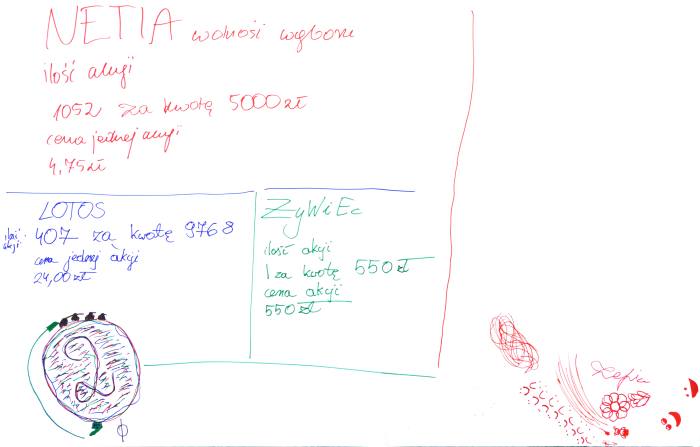 NETIA wolność wyboru
ilość akcji
1052 za kwotę 5000 zł
cena jednej akcji
4,75 zł
LOTOS
ilość akcji: 407 za kwotę 9768
cena jednej akcji
24,00 zł
ZyWiEc
ilość akcji
1 za kwotę 550 zł
cena akcji
550 zł